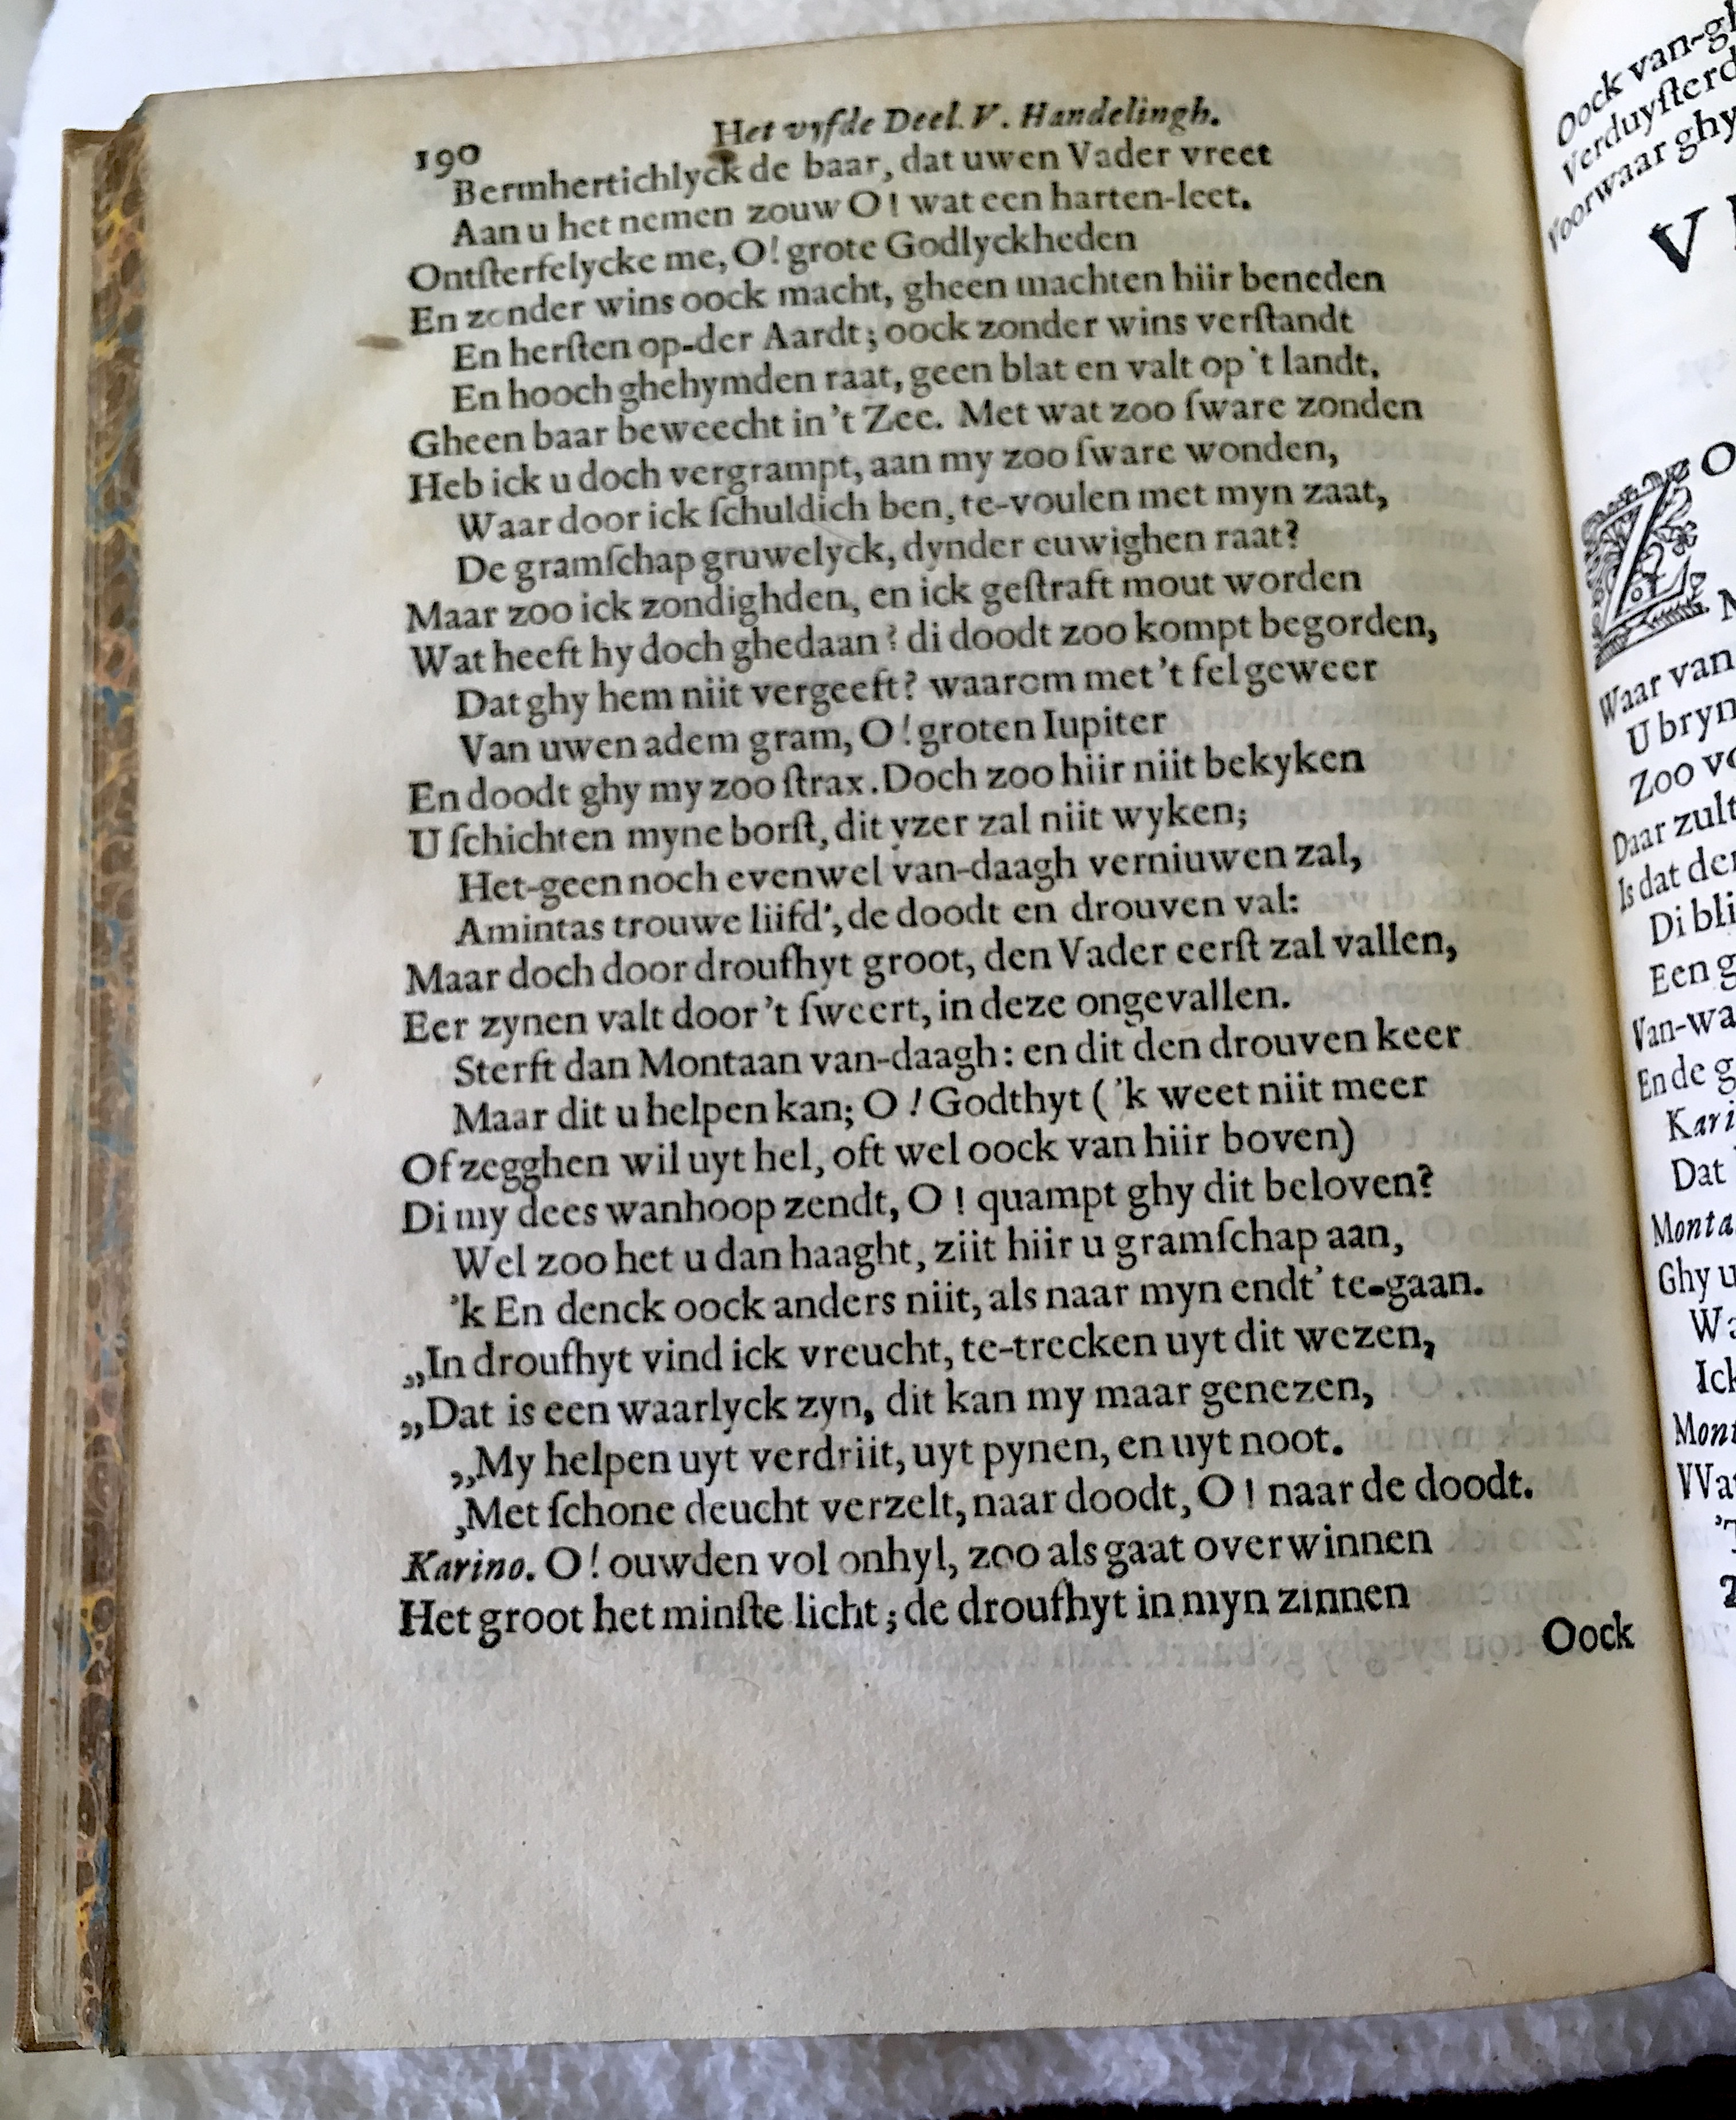 190 Het vyfde Deel. V. Handelingh.
Bermhertichlyck de baar, dat uwen Vader vreet
Aan u het nemen zouw O! wat een harten-leet.
Ontſterfelycke me, O! grote Godlyckheden
En zonder wins oock macht, gheen machten hiir beneden
En herſten op-der Aardt; oock zonder wins verſtandt
En hooch ghehymden raat, geen blat en valt op 't landt,
Gheen baar beweecht in 't Zee. Met wat zoo ſware zonden
Heb ick u doch vergrampt, aan my zoo ſware wonden,
Waar door ick ſchuldich ben, te-voulen met myn zaat,
De gramſchap gruwelyck, dynder euwighen raat?
Maar zoo ick zondighden, en ick geſtraft mout worden
Wat heeft hy doch ghedaan? di doodt zoo kompt begorden,
Dat ghy hem niit vergeeft? waarom met 't fel geweer
Van uwen adem gram, O! groten Iupiter
En doodt ghy my zoo ſtrax. Doch zoo hiir niit bekyken
U ſchichten myne borſt, dit yzer zal niit wyken;
Het-geen noch evenwel van-daagh verniuwen zal,
Amintas trouwe liifd', de doodt en drouven val:
Maar doch door droufhyt groot, den Vader eerſt zal vallen,
Eer zynen valt door 't ſweert, in deze ongevallen.
Sterft dan Montaan van-daagh: en dit den drouven keer
Maar dit u helpen kan; O! Godthyt ('k weet niit meer
Of zegghen wil uyt hel, oft wel oock van hiir boven)
Di my dees wanhoop zendt, O! quampt ghy dit beloven?
Wel zoo het u dan haaght, ziit hiir u gramſchap aan,
'k En denck oock anders niit, als naar myn endt' te-gaan.
„In droufhyt vind ick vreucht, te-trecken uyt dit wezen,
„Dat is een waarlyck zyn, dit kan my maar genezen,
„My helpen uyt verdriit, uyt pynen, en uyt noot.
‚Met ſchone deucht verzelt, naar doodt, O! naar de doodt.
Karino. O! ouwden vol onhyl, zoo als gaat overwinnen
Het groot het minſte licht; de droufhyt in myn zinnen
Oock
Oock van-
Verduyſterd
Voorwaar ghy
V
Z O
Waar van
U bryn
Zoo
Daar zult
Is dat
Di bli
Een g
Van-wa
En de g
Kari
Dat
Monta
Ghy u
Wa
Ick
Mont
VVa